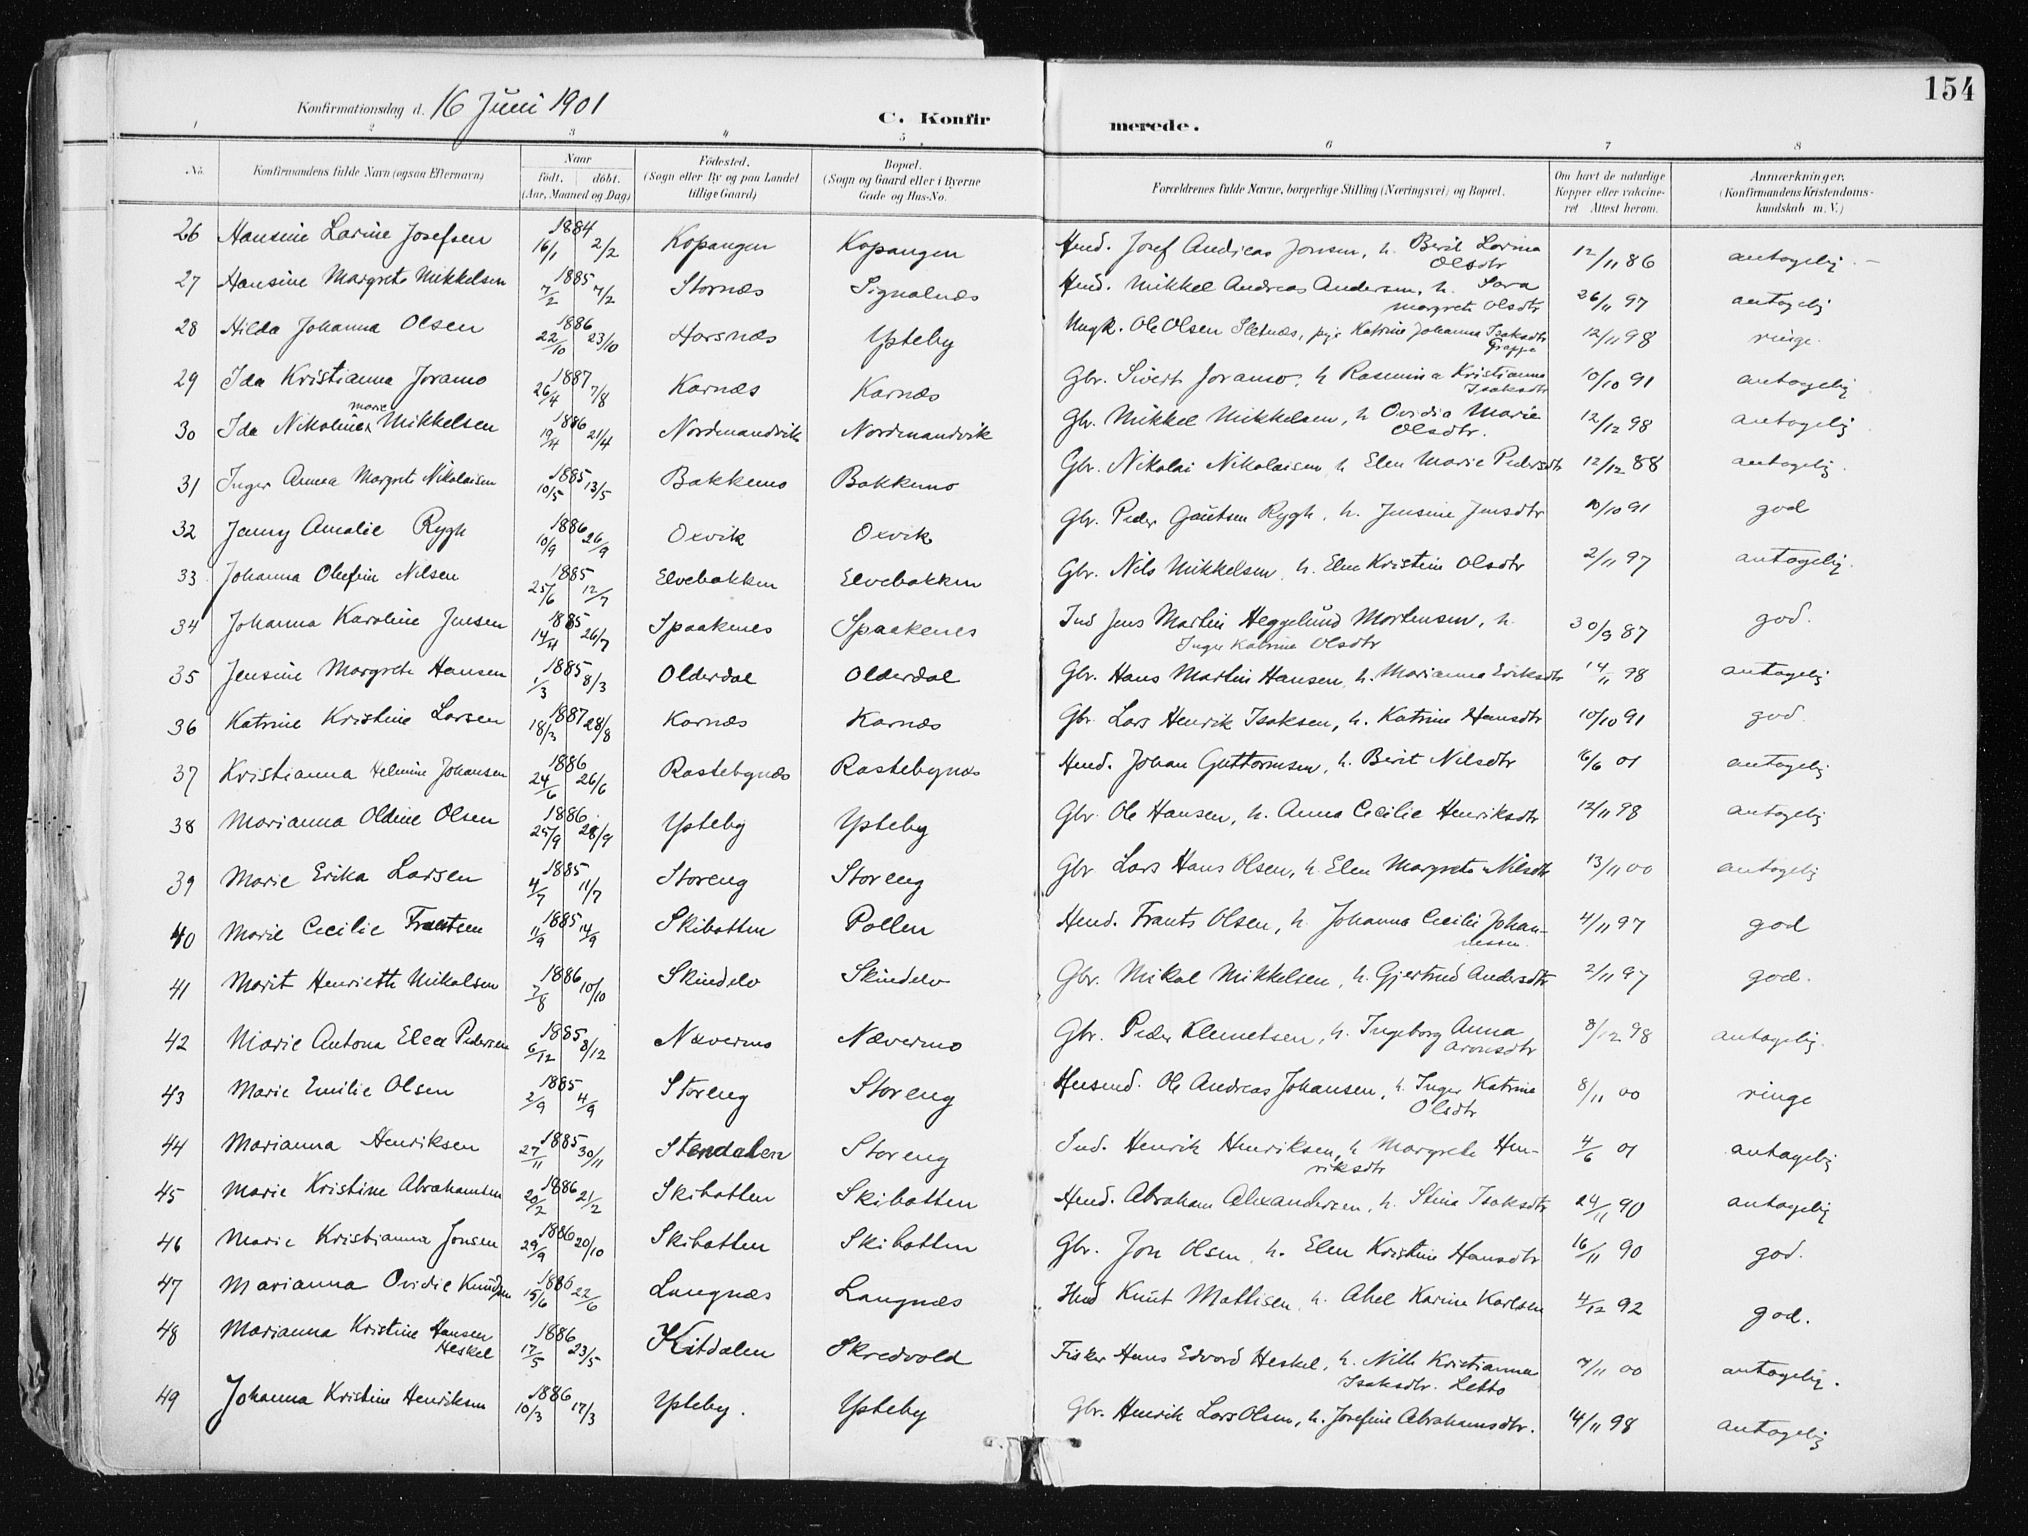 154
Konfirmationsdag d. 16 Juni 1901
C. Konfir merede.
1 2 3 4 5 6 7 8
No. Konfirmandens fulde Navn (ogsaa Efternavn) Naar födt. döbt. (Aar, Maaned og Dag) Födested. (Sogn eller By og paa Landet tillige Gaard) Bopæl. (Sogn og Gaard eller i Byerne Gade og Hus-No. Forældrenes fulde Navne, borgerlige Stilling (Næringsvei) og Bopæl. Om havt de naturlige Kopper eller vakcineret Attest herom. Anmærkninger. (Konfirmandens Kristendomskundskab m. V.)
26 Hansine Larine Josefsen 1884 16/1 2/2 Kopangen Kopangen Hmd. Josef Andreas Jonsen, h. Berit Lovina Olsdtr 12/11 86 antagelig.
27 Hansine Margrete Mikkelsen 1885 7/2 7/2 Stornæs Signalnæs Hmd. Mikkel Andreas Andersen, h. Sara Margrete Olsdtr 26/11 97 antagelig
28 Hilda Johanna Olsen 1886 22/10 23/10 Horsnæs Ysteby Ungk. Ole Olsen Sletnæs, pige Katrine Johanna Isaksdtr Grape 12/11 98 ringe.
29 Ida Kristianna Joramo 1887 26/4 7/8 Karnæs Karnæs Gbr. Sivert Joramo, h Rasmina Kristianna Isaksdtr 10/10 91 antagelig
30 Ida Nikoline Marie Mikkelsen 1886 19/4 21/4 Nordmandvik Nordmandvik Gbr. Mikkel Mikkelsen, h Ovidia Marie Olsdtr. 12/12 98 antagelig
31 Inger Anna Margrete Nikolaisen 1885 10/5 13/5 Bakkemo Bakkemo Gbr. Nikolai Nikolaisen, h Elen Marie Pedersdtr 12/12 88 antagelig.
32 Jenny Amalie Rygh 1886 10/9 26/9 Oxvik Oxvik Gbr. Peder Gautsen Rygh, h. Jensine Jensdtr 10/10 91 god
33 Johanna Olufine Nilsen 1885 25/6 12/7 Elvebakken Elvebakken Gbr. Nils Mikkelsen, h. Elen Kristine Olsdtr 2/11 97 antagelig.
34 Johanna Karoline Jensen 1885 14/4 26/7 Spaakenes Spaakenes Ind Jens Martin Heggelund Mortensen, h. Inger Katrine Olsdtr 30/9 87 god.
35 Jensine Margrete Hansen 1885 1/3 8/3 Olderdal Olderdal Gbr. Hans Martin Hansen, h. Marianna Eriksdtr 14/11 98 antagelig
36 Katrine Kristine Larsen 1887 18/3 28/8 Karnæs Karnæs Gbr. Lars Henrik Isaksen, h. Katrine Hansdtr 10/10 91 god.
37 Kristianna Helmine Johansen 1886 24/6 26/6 Rastebynæs Rastebynæs Hmd. Johan Guttormsen, h. Berit Nilsdtr 6/6 01 antagelig
38 Marianna Oldine Olsen 1886 25/9 28/9 Ysteby Ysteby Gbr. Ole Hansen, h. Anna Cecilie Henriksdtr 12/11 98 antagelig
39 Marie Erika Larsen 1885 4/7 11/7 Storeng Storeng Gbr Lars Hans Olsen, h. Elen Margrete Nilsdtr 13/11 00 antagelig
40 Marie Cecilie Frantsen 1885 11/9 14/9 Skibotten Pollen Hmd. Frants Olsen, h. Johanna Cecilie Johannessen. 4/11 97 god
41 Marit Henriette Mikalsen 1886 7/8 10/10 Skindelv Skindelv Gbr. Mikal Mikkelsen, h. Gjertrud Andersdtr 2/11 97 god.
42 Marie Antona Elea Pedersen 1885 6/12 8/12 Nævermo Nævermo Gbr. Peder Klemetsen, h. Ingeborg Anna Aronsdtr 8/12 98 antagelig.
43 Marie Emilie Olsen 1885 2/9 4/9 Storeng Storeng Husmd. Ole Andreas Johansen, h. Inger Katrine Olsdtr 8/11 00 ringe
44 Marianna Henriksen 1885 27/11 30/11 Stendalen Storeng Ind. Henrik Henriksen, h Margrete Henriksdtr 4/6 01 antagelig
45 Marie Kristine Abrahamsen 1886 20/2 21/2 Skibotten Skibotten Hmd. Abraham Alexandersen, h. Stina Isaksdtr 24/11 90 antagelig
46 Marie Kristianna Jonsen 1886 29/9 20/10 Skibotten Skibotten Gbr. Jon Olsen, h. Elen Kristine Hansdtr 16/11 90 god.
47 Marianna Ovidie Knudsen 1886 15/6 22/6 Langnæs Langnæs Hmd Knut Mathisen, h. Abel Karine Karlsen 4/12 92 god.
48 Marianna Kristine Hansen Heskel 1886 17/5 23/5 Kitdalen Skredvold Fisker Hans Edvard Heskel, h. Nille Kristianna Isaksdtr. Letto 7/11 00 antagelig.
49 Johanna Kristine Henriksen 1886 10/3 17/3 Ysteby. Ysteby Gbr. Henrik Lars Olsen, h. Josefine Abrahamsdtr. 14/11 98 antagelig